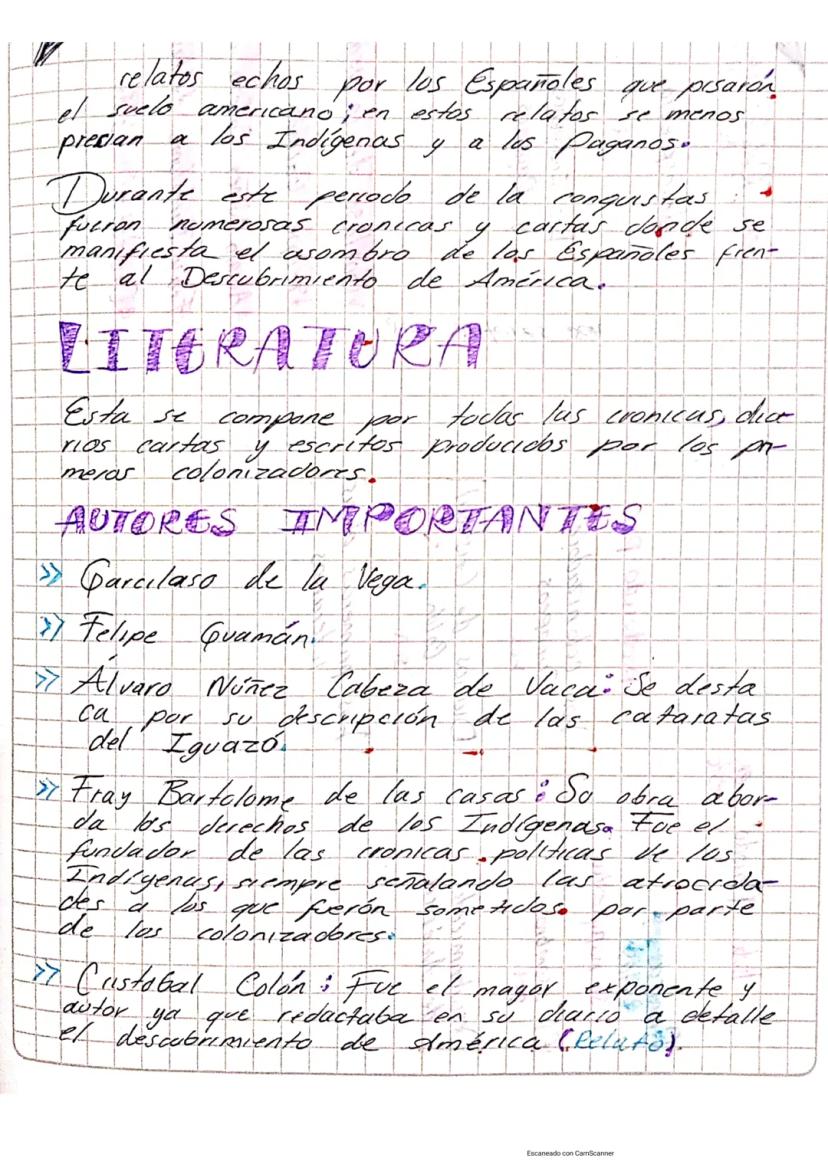 relatos echos por los Españoles que pisarón
el suelo americano; en estos relatos se menos
presian a los Indígenas y a los Paganos.
Durante este periodo de la conquistas
fueron numerosas cronicas y cartas donde se
manifiesta el asombro de los Españoles fren-
te al Descubrimiento de América.
LITERATURA
Esta se compone por todas las cronicas, dia-
rios cartas y escritos producidos por los pri-
meros colonizadores.
AUTORES IMPORTANTES
>> Garcilaso de la Vega.
>> Felipe Guamán.
>> Álvaro Núñez Cabeza de Vaca: Se desta
ca por su descripción de las cataratas
del Iguazú.
>> Fray Bartolome de las casas: Su obra abor-
da los derechos de los Indígenas. Fue el
fundador de las cronicas politicas de los
Indígenas, siempre señalando las atrocida-
des a los que fuerón sometidos por parte
de los colonizadores.
>> Cristobal Colón: Fue el mayor exponente y
autor ya que redactaba en su diario a detalle
el descubrimiento de América (Relato).
Escaneado con CamScanner